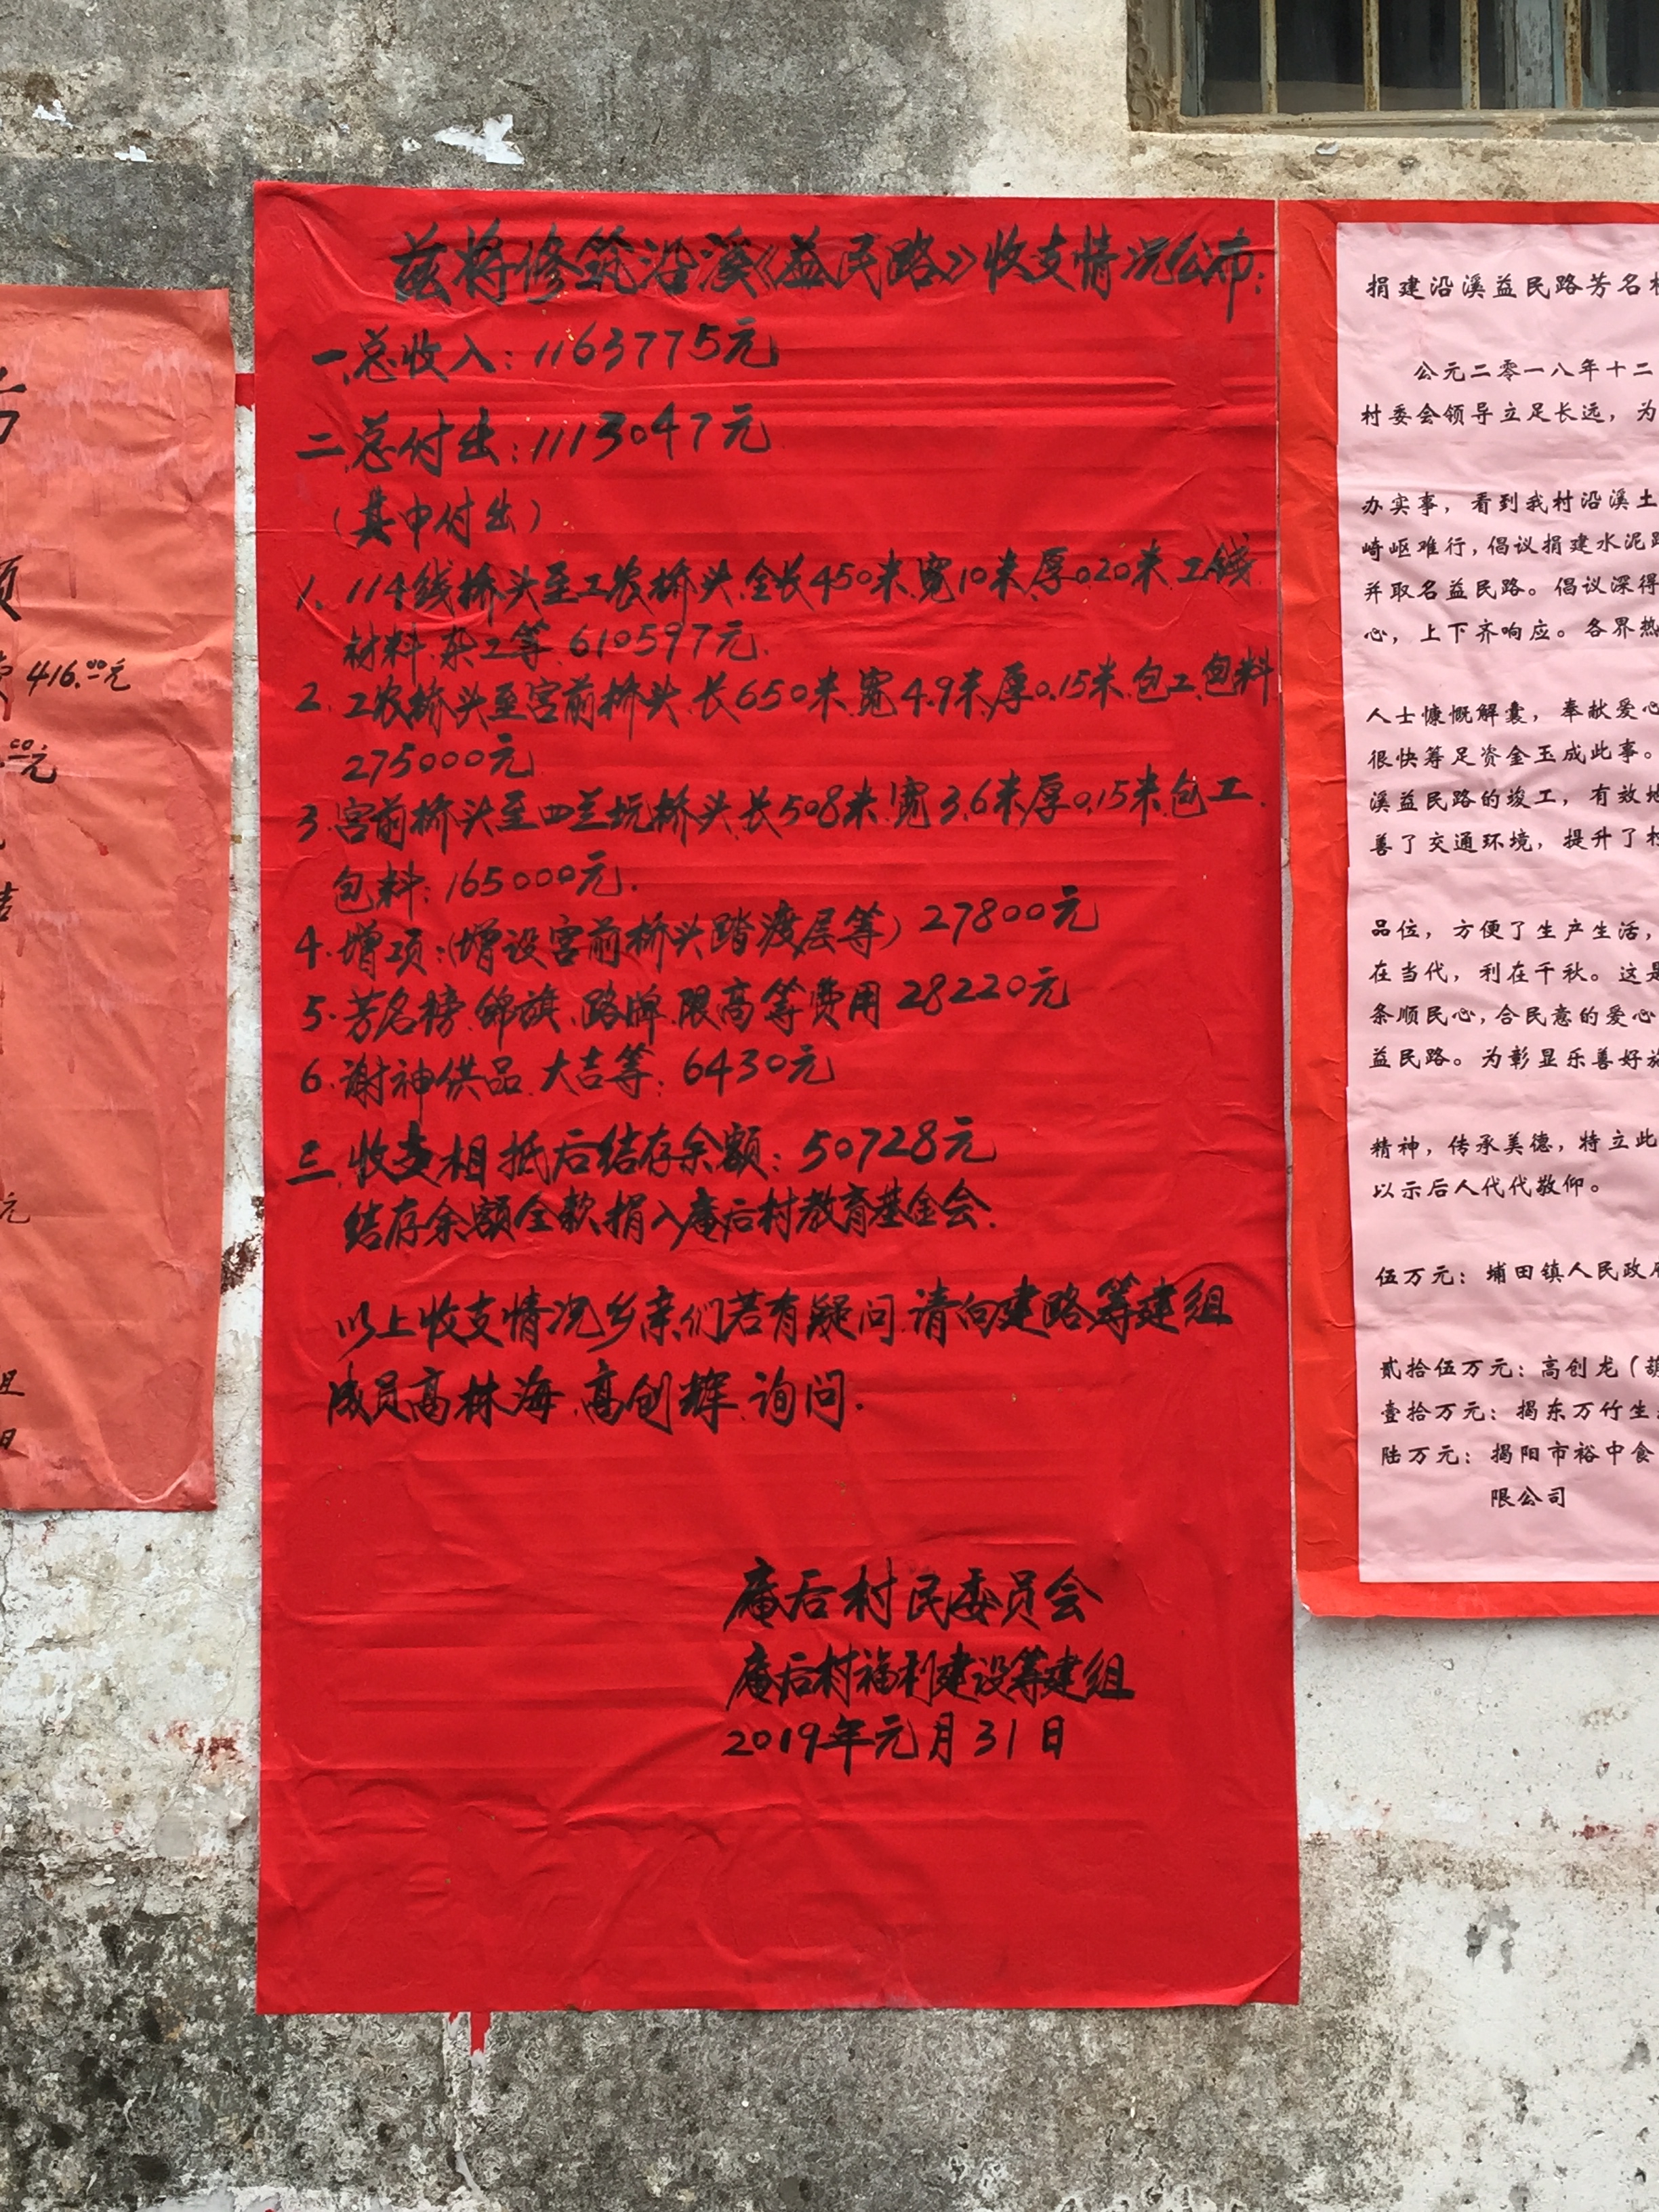 兹将修筑沿溪《益民路》收支情况公布:
一.总收入:1163775元
二.总付出:1113047元
(其中付出)
1、114线桥头至工农桥头.全长450米.宽10米.厚0.20米.工钱
材料.杂工等.610597元.
2.工农桥头至宫前桥头.长650米.宽4.9米.厚0.15米.包工.包料
275000元
3.宫前桥头至四兰坑桥头.长508米.宽3.6米厚0.15米.包工.
包料:165000元.
4.增项:(增设宫前桥头踏渡层等)27800元
5.芳名榜.锦旗.路牌.限高等费用28220元
6.谢神供品.大吉等:6430元
三.收支相抵后结存余额:50728元
结存余额全款捐入庵后村教育基金会.
以上收支情况乡亲们若有疑问.请向建路筹建组
成员高林海.高创辉.询问.
庵后村民委员会
庵后村福利建设筹建组
2019年元月31日
416.00元
.00元
元
日
捐建沿溪益民路芳名
公元二零一八年十二
村委会领导立足长远,为
办实事,看到我村沿溪土
崎岖难行,倡议捐建水泥
并取名益民路。倡议深得
心,上下齐响应。各界热
人士慷慨解囊,奉献爱心
很快筹足资金玉成此事。
溪益民路的竣工,有效地
善了交通环境,提升了
品位,方便了生产生活,
在当代,利在千秋。这是
条顺民心,合民意的爱心
益民路。为彰显乐善好
精神,传承美德,特立此
以示后人代代敬仰。
伍万元:埔田镇人民政府
贰拾伍万元:高创龙(
壹拾万元:揭东万竹生
陆万元:揭阳市裕中食
限公司